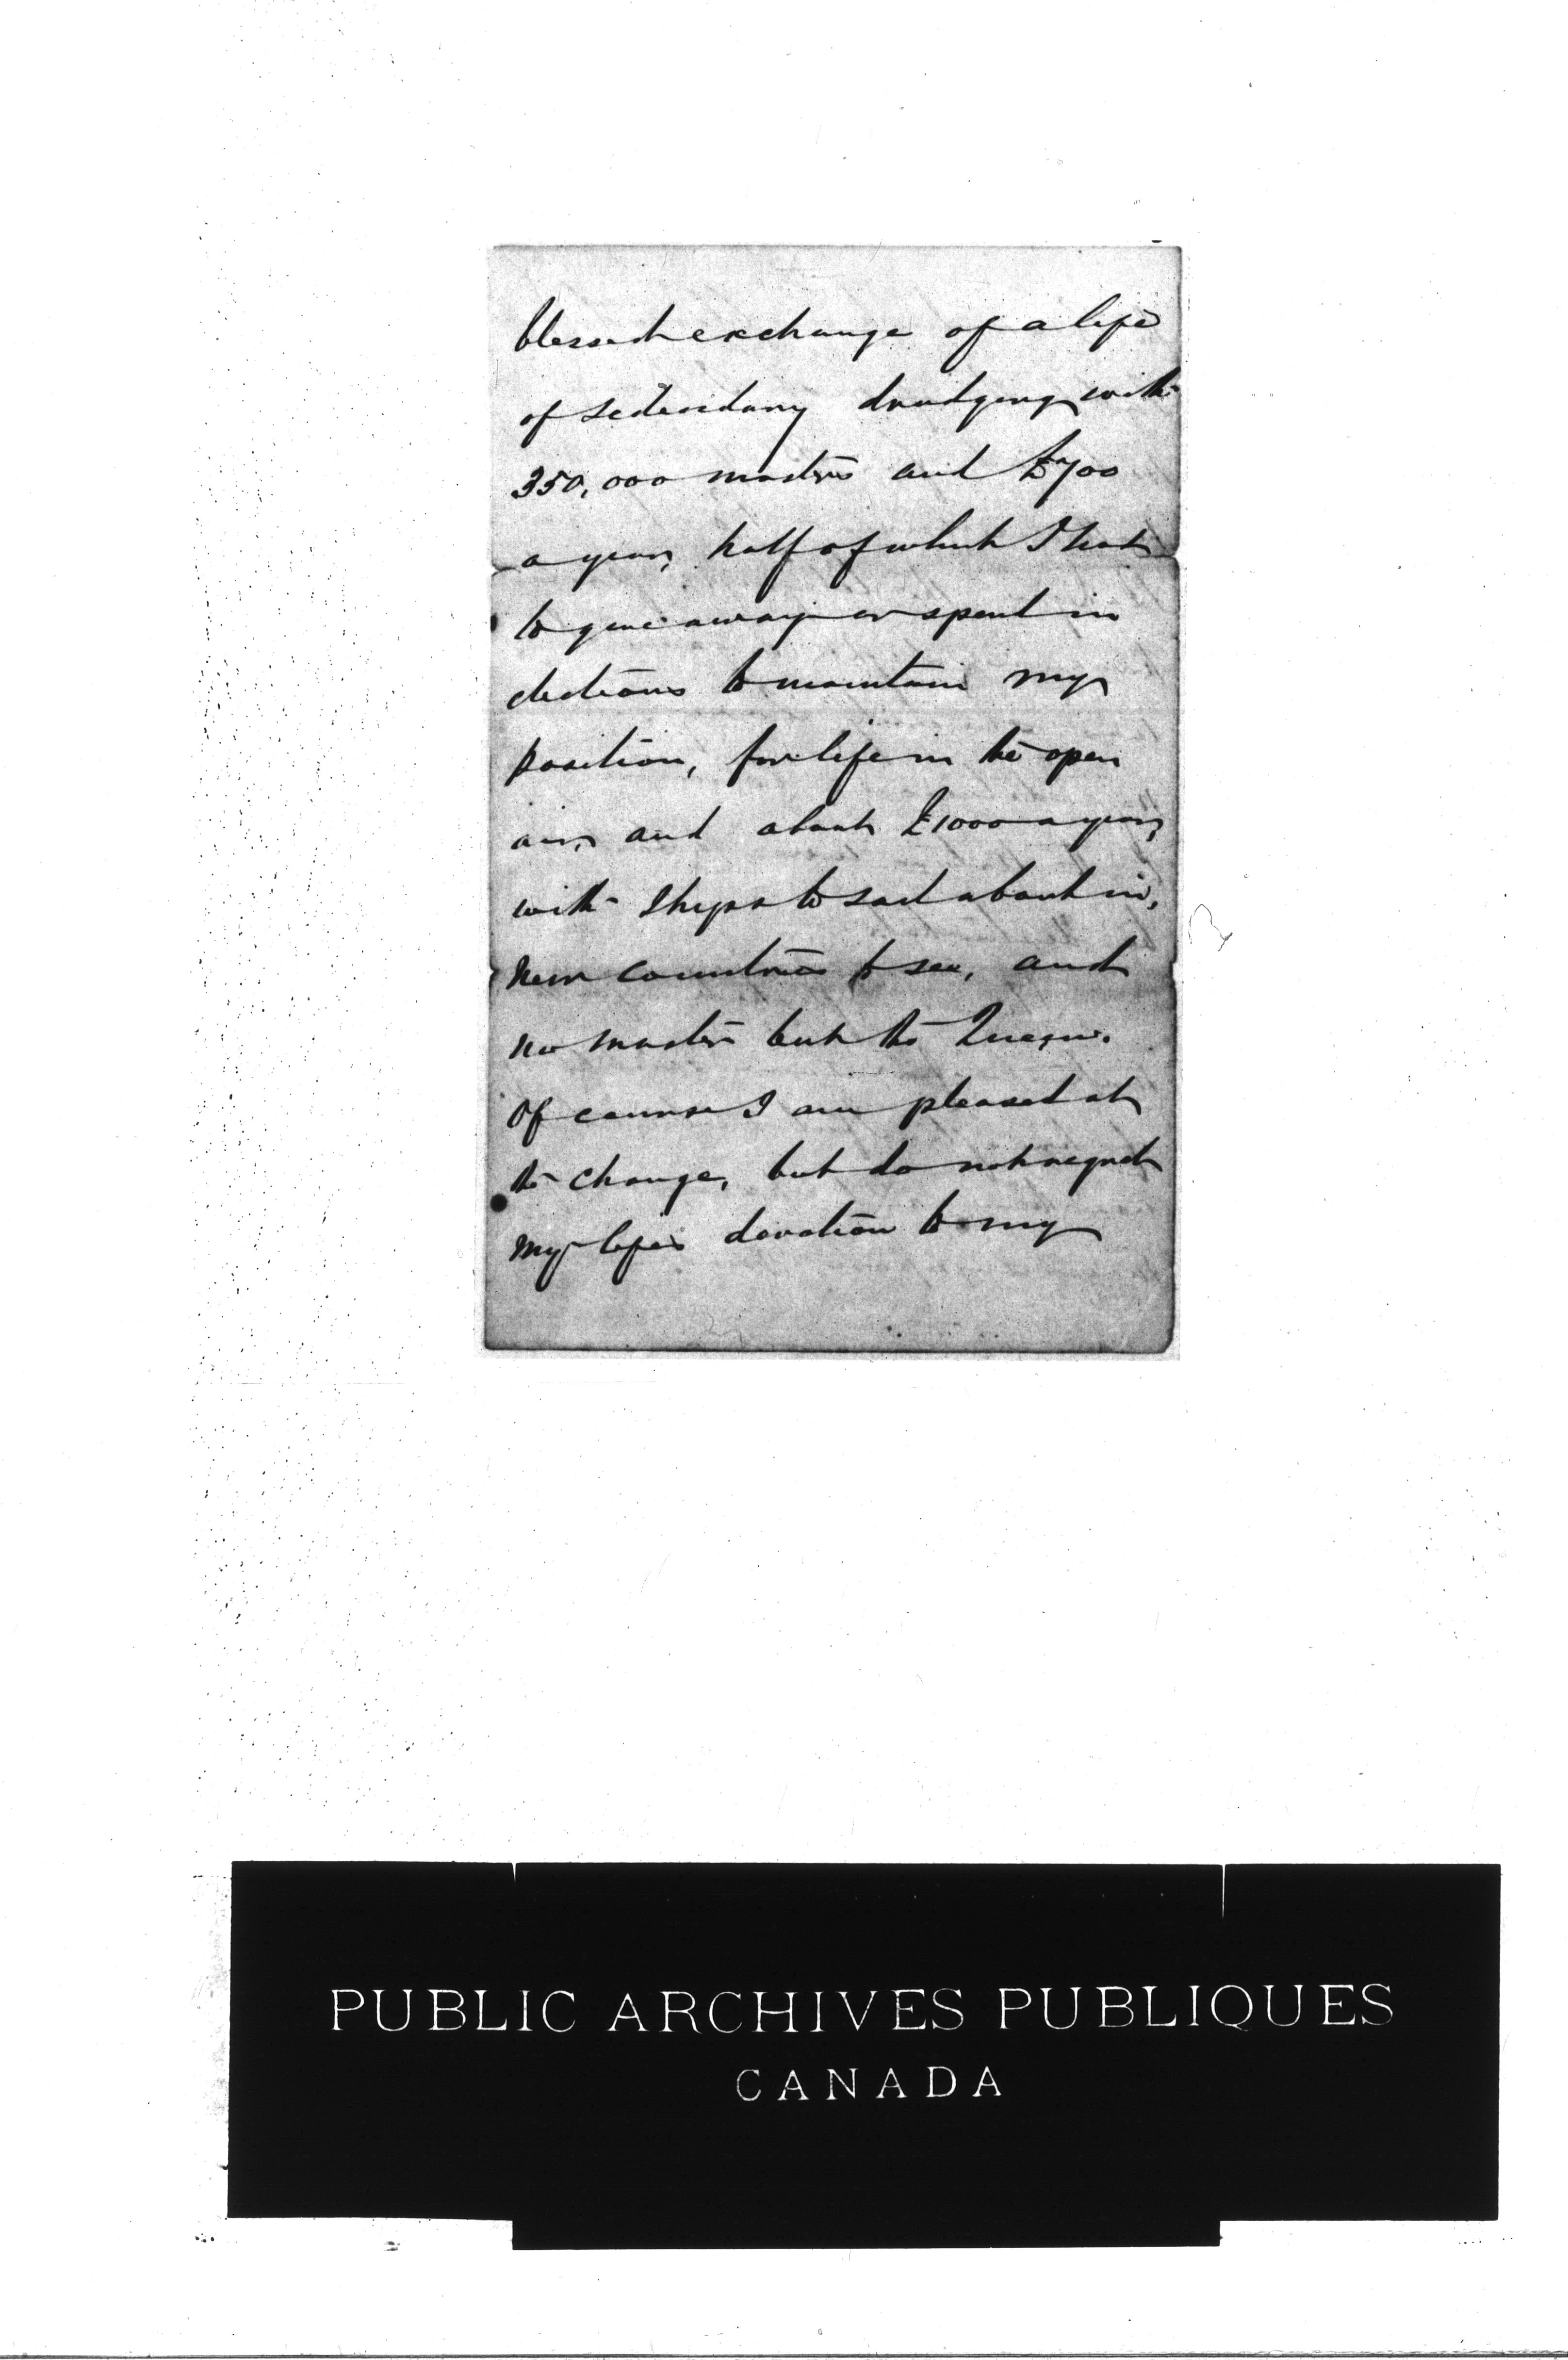 blessed exchange of a life
of sedendary drudgery with
350,000 masters and £700
a year, half of which I had
to give away or spent in
elections to maintain my
position, for life in the open
air, and about £1000 a year,
with ships to sail about in,
new countries to see, and
no master but the Queen.
Of course I am pleased at
the change, but do not regret
my life's devotion to my
PUBLIC ARCHIVES PUBLIQUES
CANADA